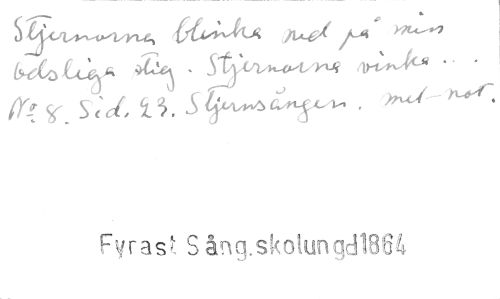 Stjernorna blinka ned på min
ödsliga stig. Stjernorna vinka...
No. 8. Sid. 23. Stjernsången. met not.
Fyrast Sång.skolungd1864